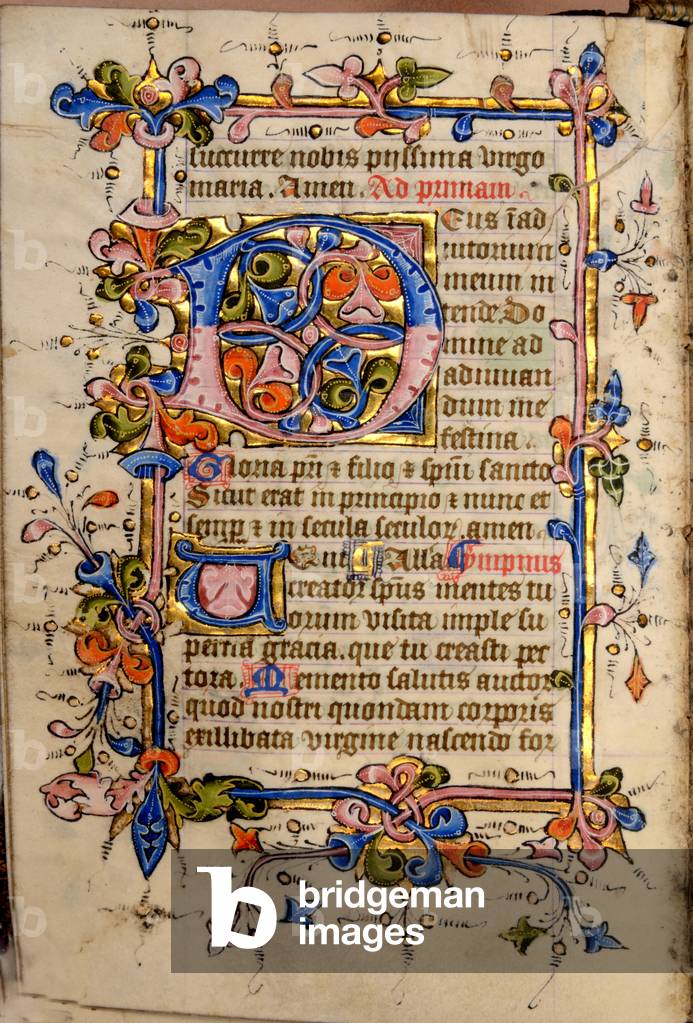 succurre nobis pijssima virgo
maria. Amen. Ad primam
Deus ī ad
iutorium
meum in
tende. Do
mine ad
adiuuan
dum me
festina.
Gloria pri & filio & spui sancto
Sicut erat in principio & nunc et
semp & in secula seculor. amen
Alla Ympnus
creator spus mentes tu
orum visita imple su
perna gracia. que tu creasti pec
tora. Memento salutis auctor
quod nostri quondam corporis
exillibata virgine nascendo for
bridgeman
images